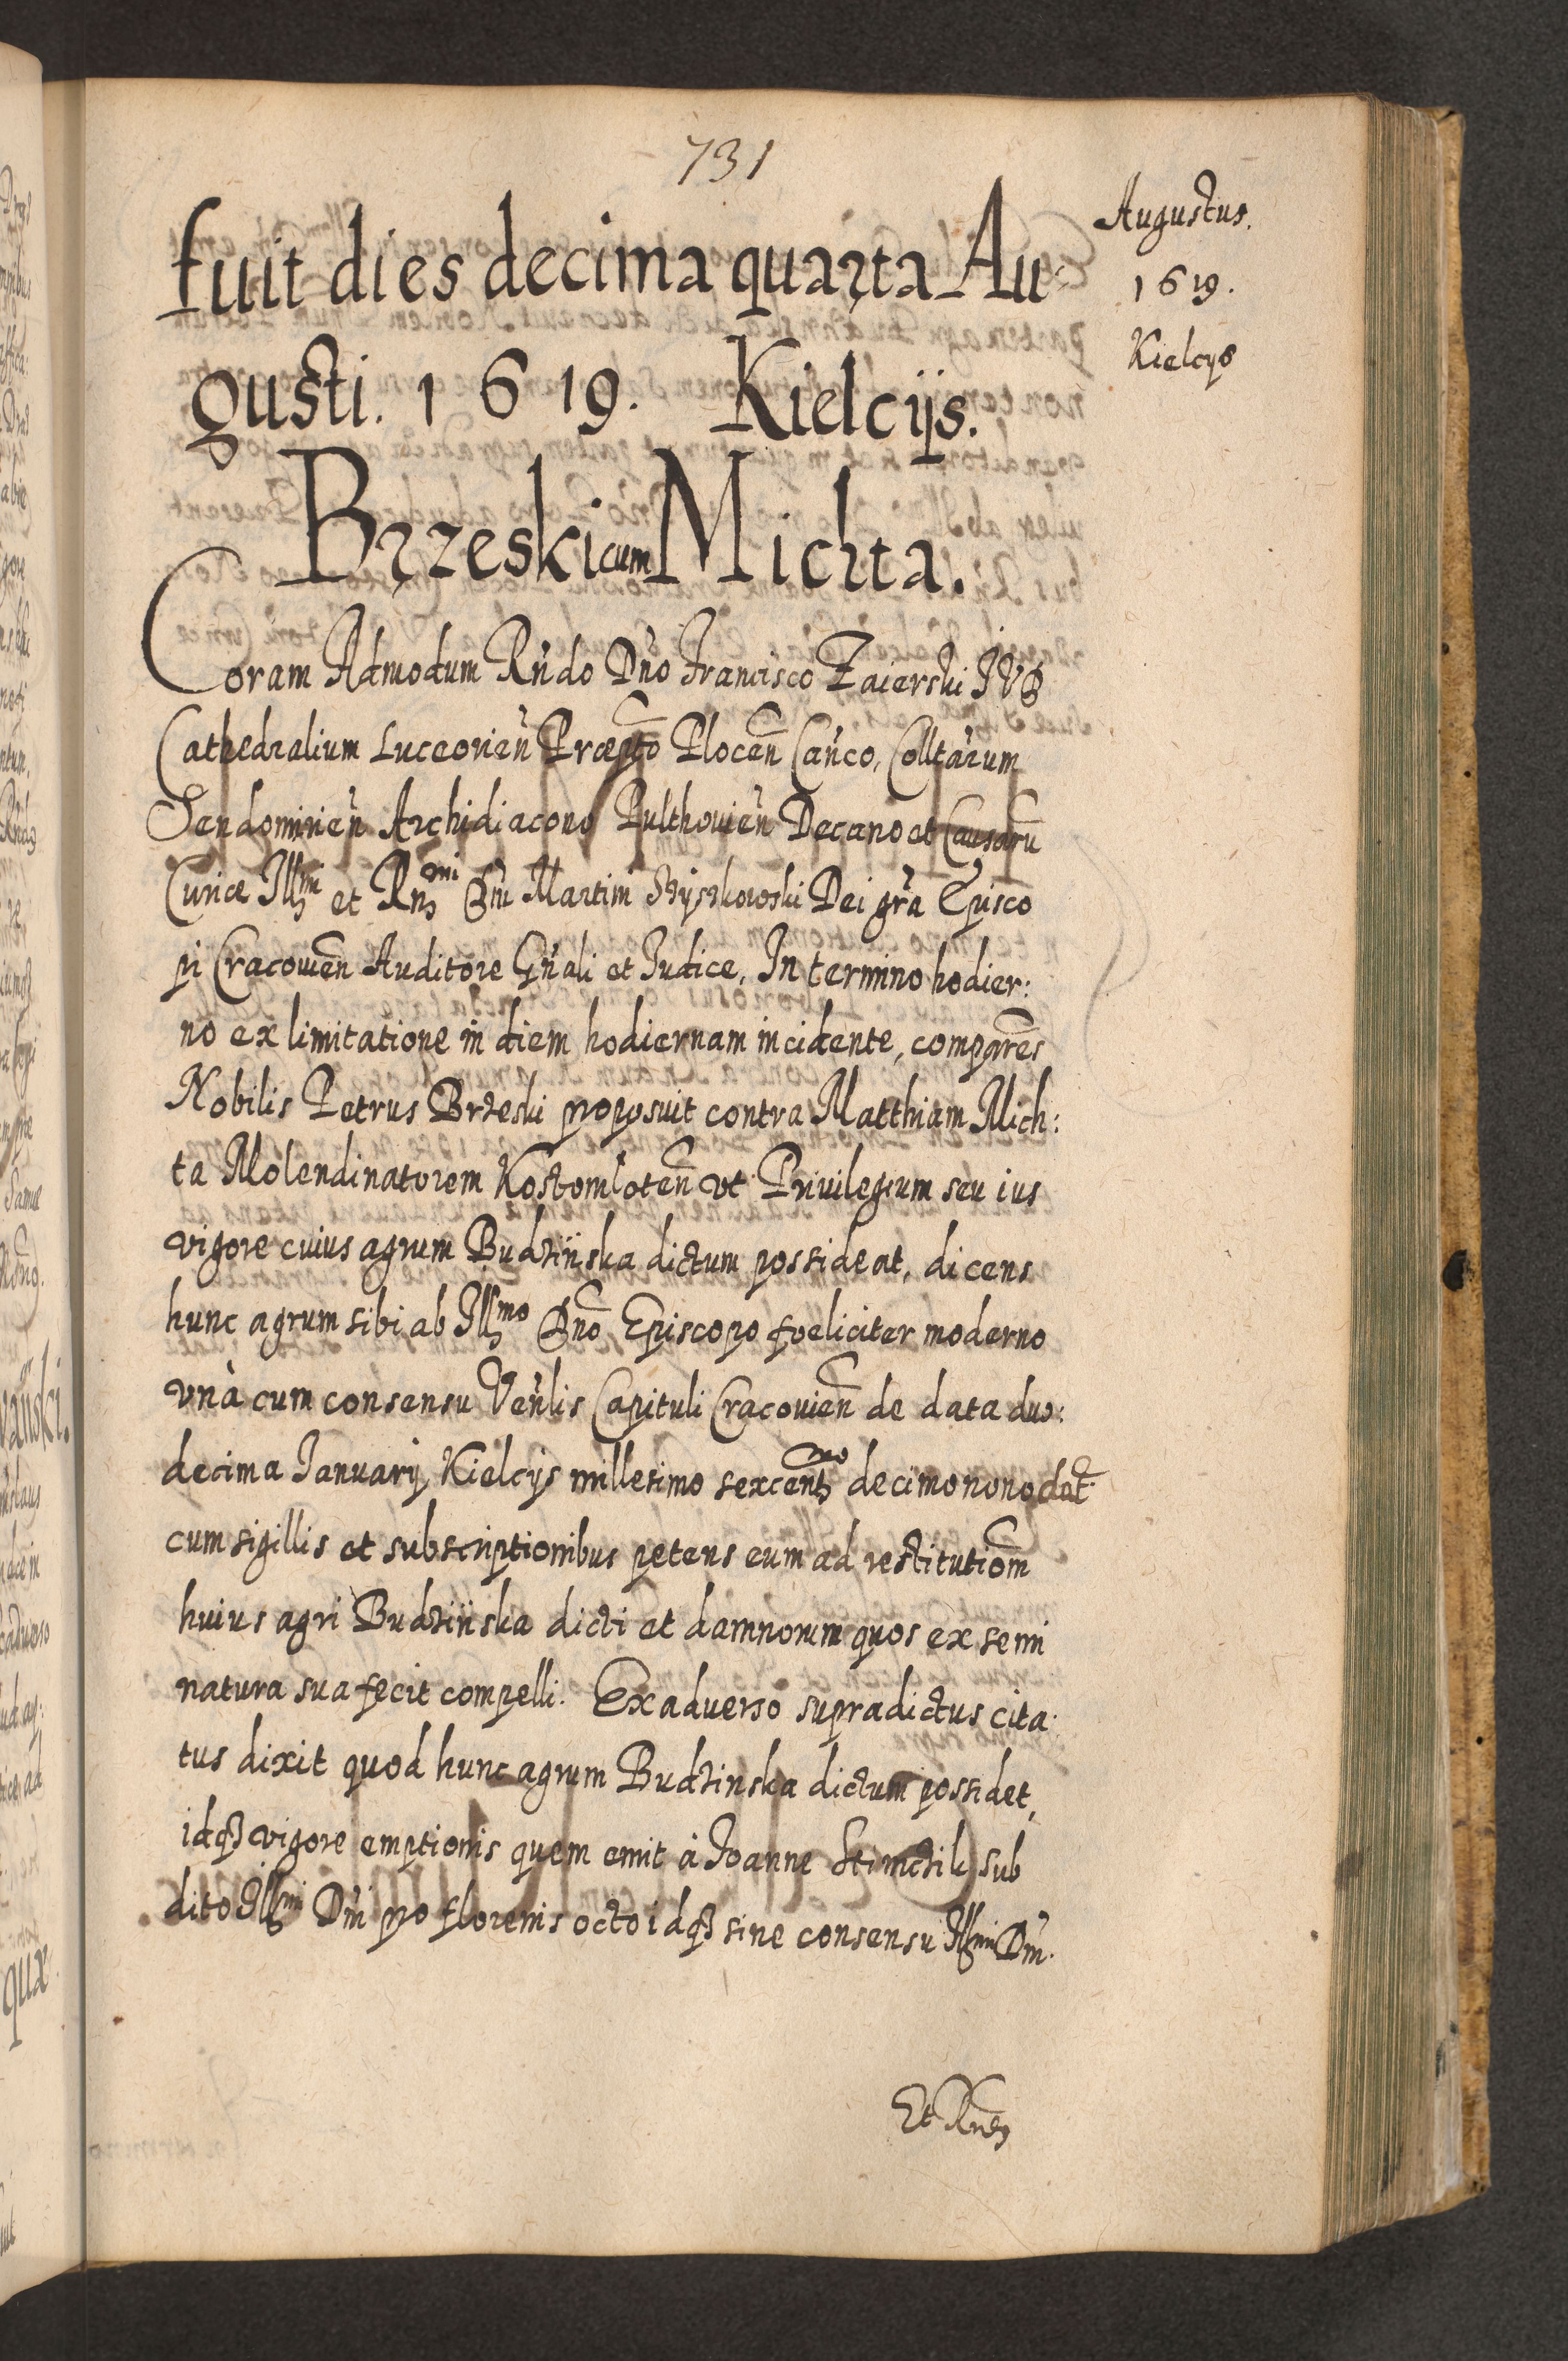 731
Augustus.
1619.
Kielcijs
fuit dies decima quarta Au-
gusti. 1619. Kielcijs.
Brzeski cum Michta.
Coram Admodum Rńdo Dńo Francisco Zaierski IVD
Cathedralium Luceorień Præpto Plocen Cańco, Colltarum
Sendomirień Archidiacono Pulthovień Decano et Causarũ
Curiæ Illmi et Rndmi Dni Martini Szyszkowski Dei gra Episco
pi Cracovien Auditore Gńali et Iudice, In termino hodier:
no ex limitatione in diem hodiernam incidente, comparẽs
Nobilis Petrus Brzeski proposuit contra Matthiam Mich:
ta Molendinatorem Kostomloten vt Privilegium seu ius
vigore cuius agrum Budzińska dictum possideat, dicens
hunc agrum sibi ab Illmo Dno Episcopo fœliciter moderno
vnà cum consensu Veńlis Capituli Cracovien de data duo:
decima Ianuarij Kielcijs millesimo sexcentmo decimonono dat
cum sigillis et subscriptionibus petens eum ad restitutiom
huius agri Budzińska dicti et damnorum quos ex semi
natura sua fecit compelli. Ex adverso supradictus cita
tus dixit quod hunc agrum Budzinska dictum possidet,
idq vigore emptionis quem emit à Joanne sub
dito Illmi Dni pro florenis octo idq sine consensu Illmi Dni.
Et Rnd